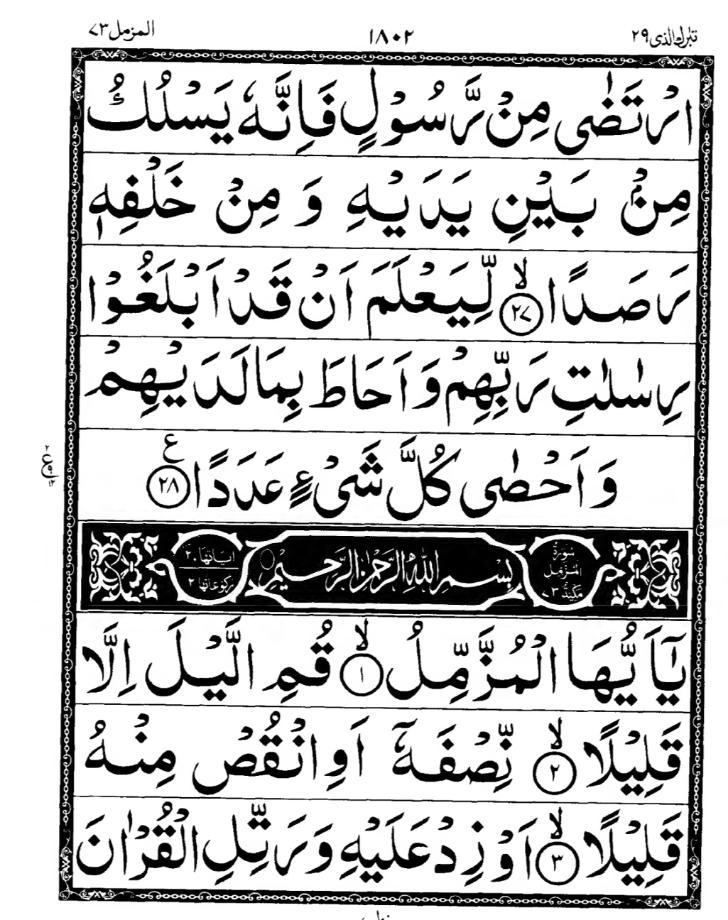 تبٰرك الذى ٢٩ ١٨٠٢ المزمل ٧٣
ارْتَضٰى مِنْ رَّسُوْلٍ فَاِنَّهٗ يَسْلُكُ
مِنْۢ بَيْنِ يَدَيْهِ وَ مِنْ خَلْفِهٖ
رَصَدًا ۙ﴿٢٧﴾ لِّيَعْلَمَ اَنْ قَدْ اَبْلَغُوْا
رِسٰلٰتِ رَبِّهِمْ وَ اَحَاطَ بِمَا لَدَيْهِمْ
وَ اَحْصٰى كُلَّ شَىْءٍ عَدَدًا ﴿٢٨﴾ ع
سُوْرَةُ الْمُزَّمِّلِ مَكِّيَّةٌ ٣ بِسْمِ اللّٰهِ الرَّحْمٰنِ الرَّحِيْمِ اٰيٰاتها ٢٠ ركوعاتها ٢
يٰۤاَيُّهَا الْمُزَّمِّلُ ۙ﴿١﴾ قُمِ الَّيْلَ اِلَّا
قَلِيْلًا ۙ﴿٢﴾ نِّصْفَهٗۤ اَوِ انْقُصْ مِنْهُ
قَلِيْلًا ۙ﴿٣﴾ اَوْ زِدْ عَلَيْهِ وَ رَتِّلِ الْقُرْاٰنَ